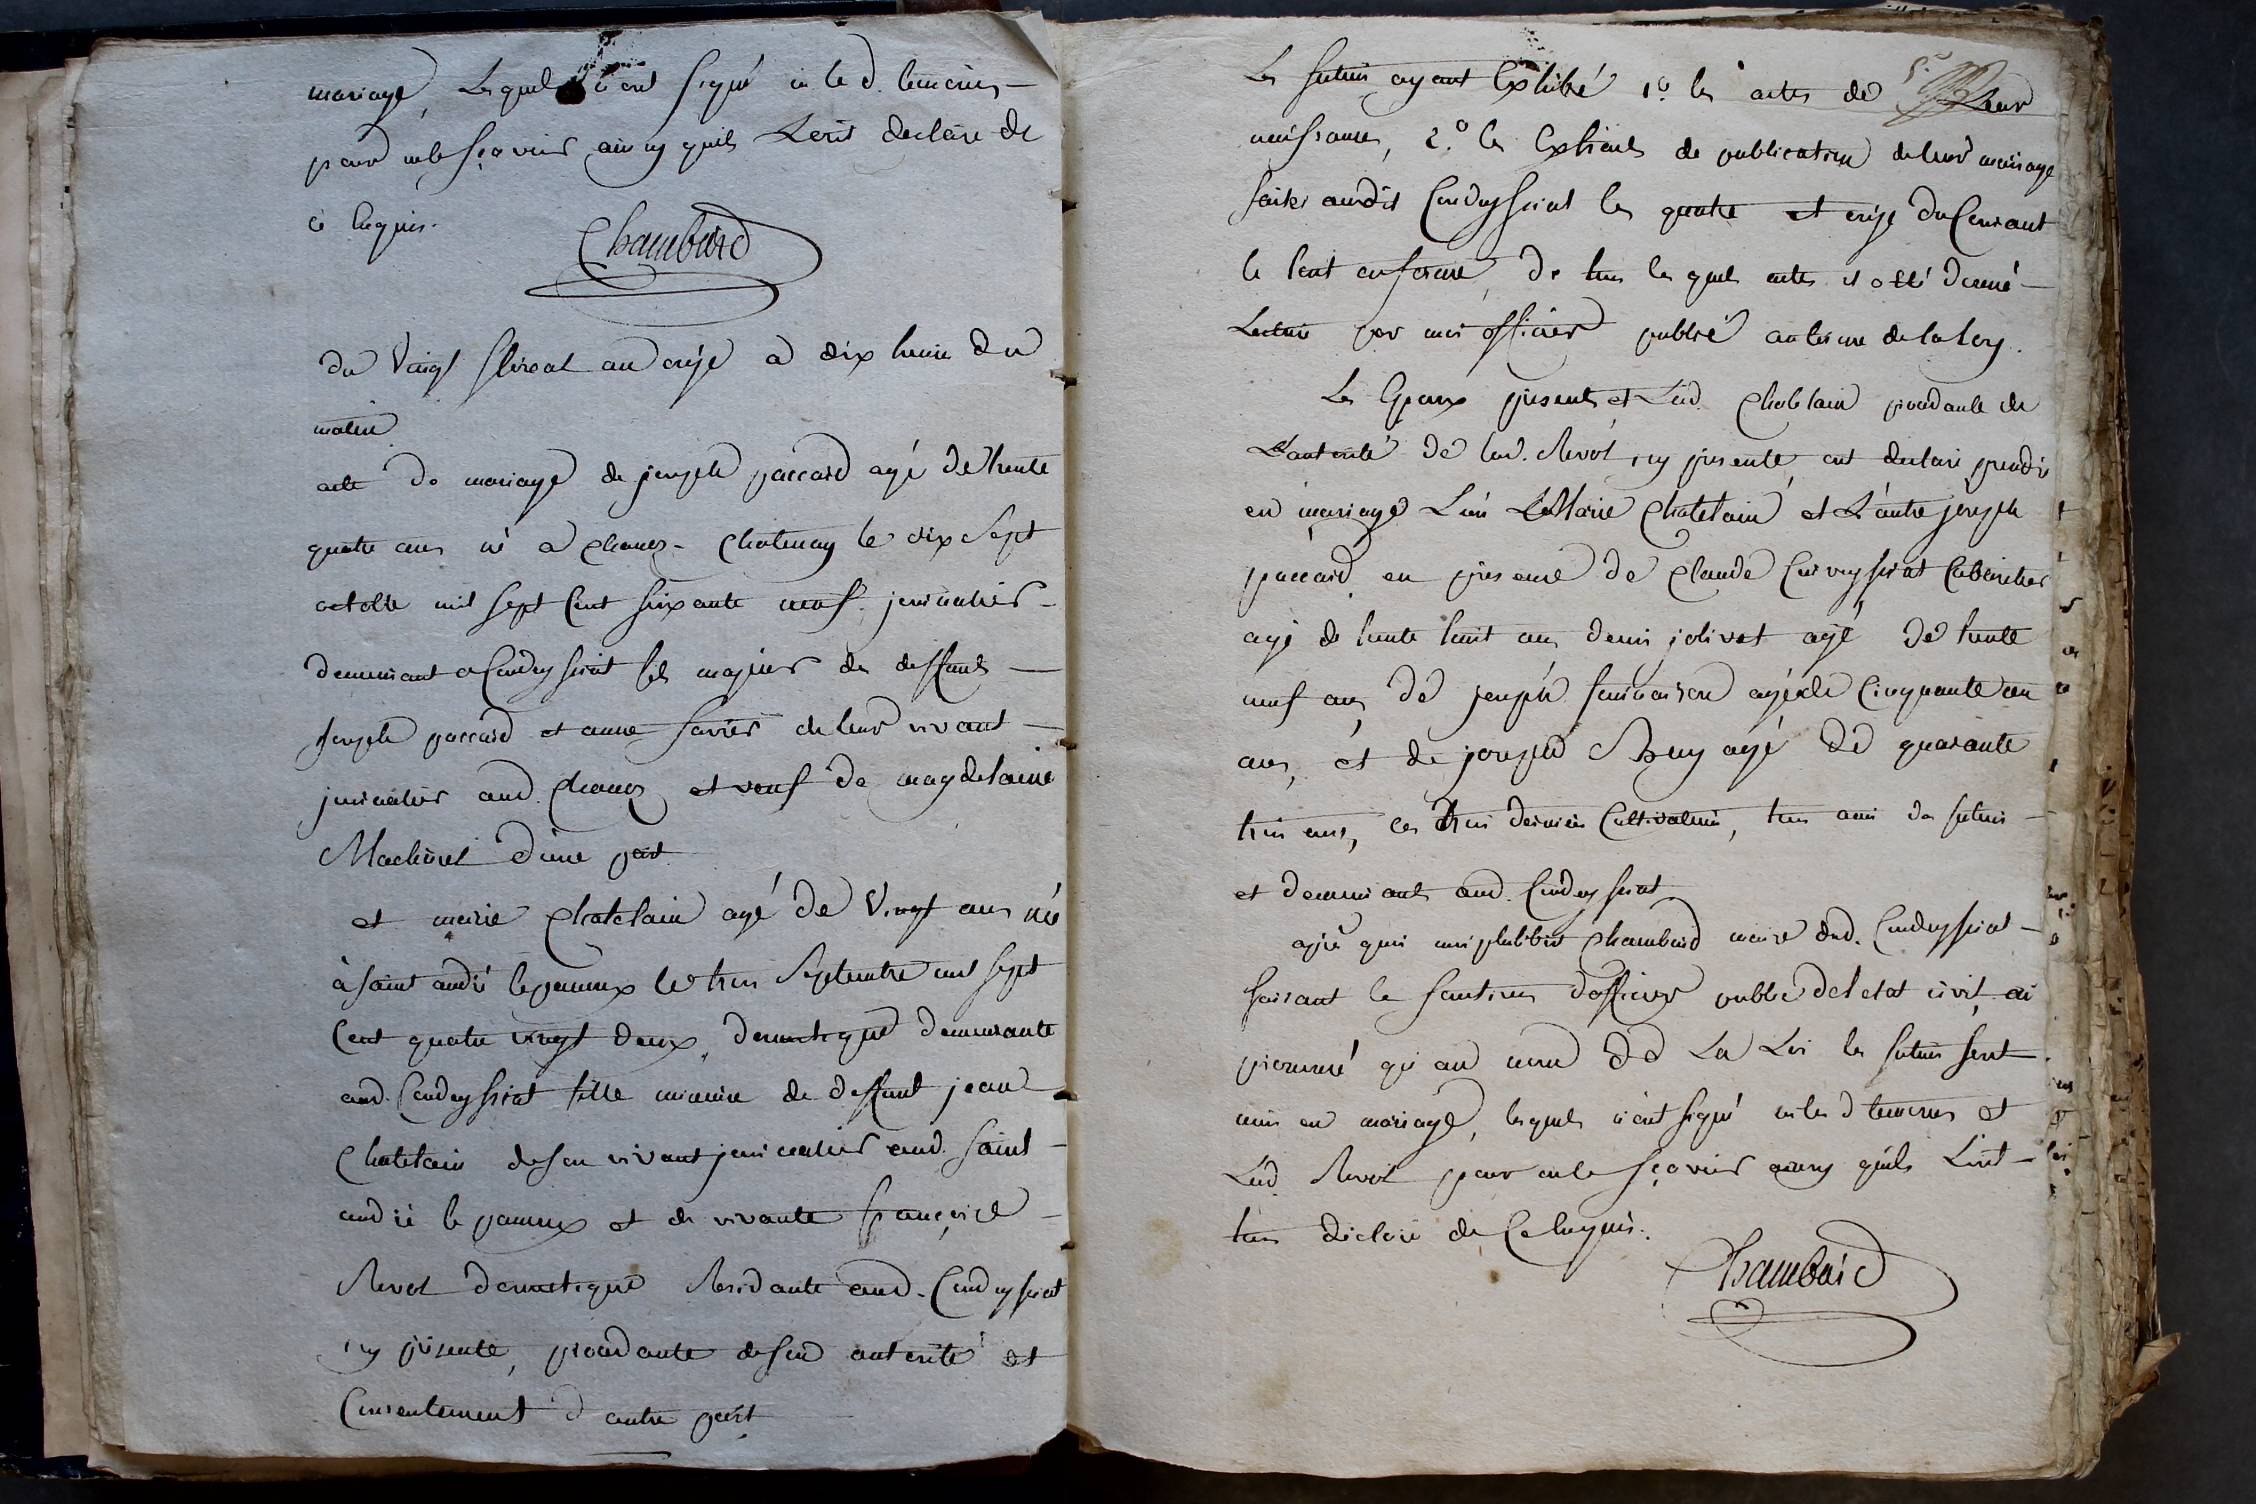 mariage, Lesquels n'ont signé ni led. temoins
pour ne le sçavoir ainsy quils L'ont declaré de
ce Requis.
Chambard
du Vingt floreal an onze a dix heure du
matin
acte de mariage de joseph paccard agé de trente
quatre ans né a Chanoz-Chatenay le dix sept
octobre mil sept Cent soixante neuf, journalier
demeurant a Condeyssiat fils majeur de deffunts
joseph paccard et anne favier de leur vivant
journalier aud. Chanoz et veuf de magdelaine
Machuret d'une part
et marie Chatelain agé de Vingt ans née
à saint andré le panoux le trois Septembre mil sept
Cent quatre vingt deux, domestique demeurante
aud. Condeyssiat fille mineure de deffunt jean
Chatelain de son vivant journalier aud. saint
andré le panoux et de vivante françoise
Revol domestique Residante aud. Condeyssiat
icy présente, procedante de son autorité et
Consentement d'autre part
Les futurs ayant Exhibé 1º. les actes de Leur
naissance, 2º. les Extraits de publication de leur mariage
faites audit Condeyssiat les quatre et onze du Courant
le tout en forme, de tous lesquels actes il a été donné
Lecture par moi officier public au terme de la loy.
Les Epoux présents et Lad. Chatelain procedante de
L'autorité de lad. Revol icy présente, ont declaré prendre
en mariage L'un Marie Chatelain et L'autre joseph
paccard, en présence de Claude Cabaretier
agé de trente huit ans denis jolivet agé de trente
neuf ans de joseph agé de Cinquante un
ans, et de joseph agé de quarante
trois ans, ces trois derniers Cultivateurs, tous amis des futurs
et demeurants aud. Condeyssiat
après quoi moi philibert Chambard maire dud. Condeyssiat
faisant les fonctions d'officier public de l'etat civil, ai
prononcé qu'au nom de La Loi les futurs sont
unis en mariage, lesquels n'ont signé ni les d temoins et
Lad. Revol pour ne le sçavoir ainsy quils L'ont
tous déclaré de Ce Requis.
Chambard